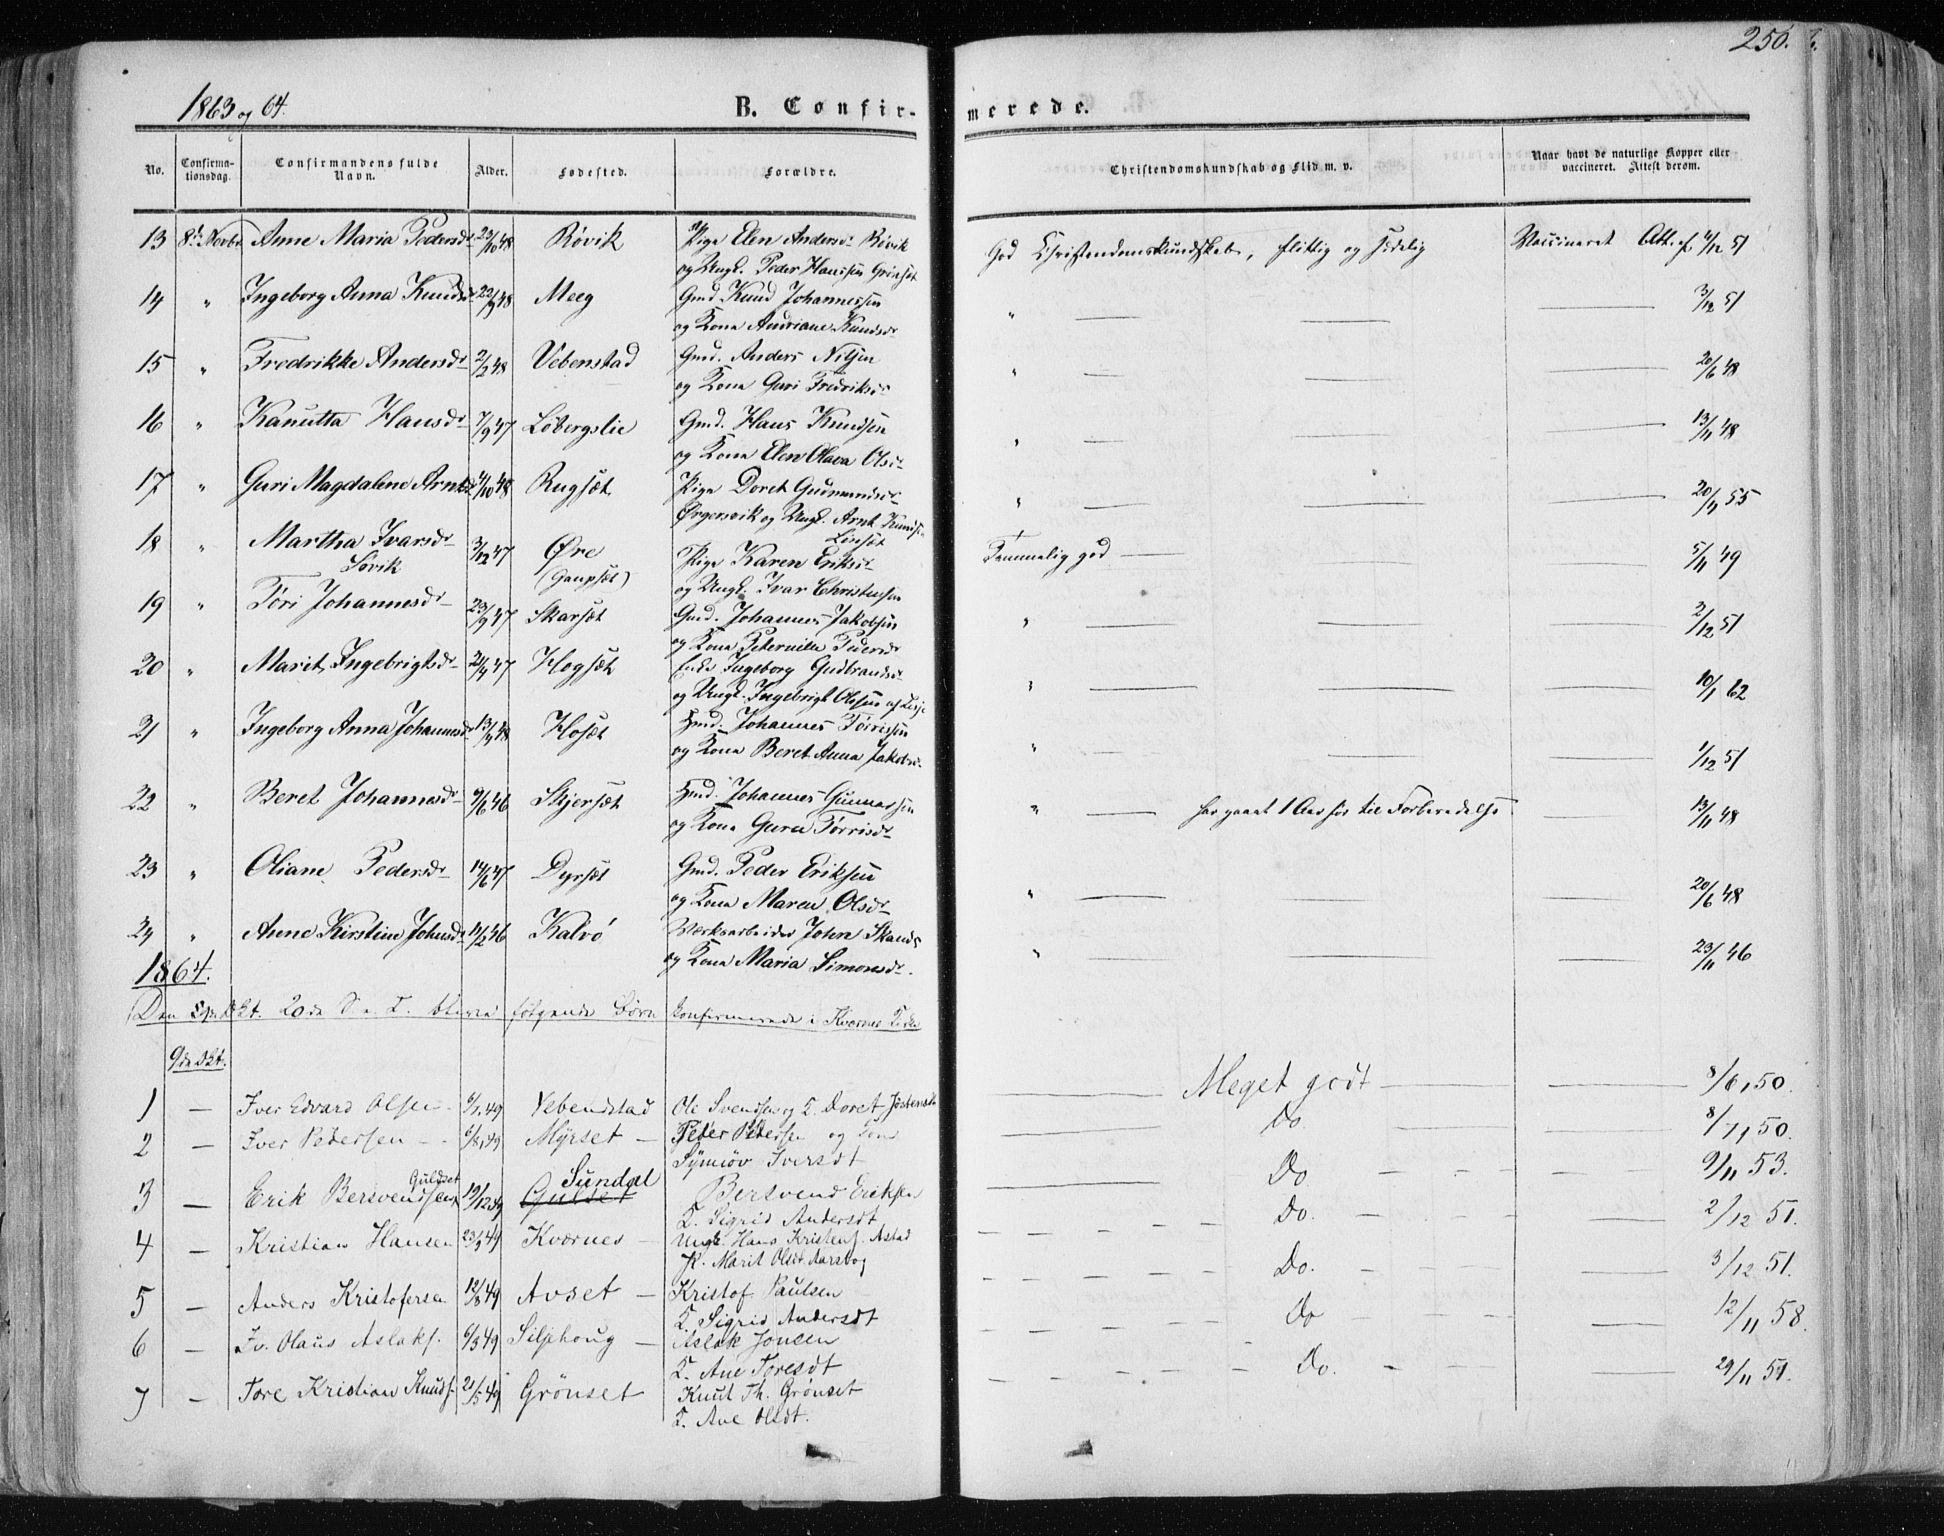 250.
1863 og 64.
B. Confir-
merede.
No.
Confirma-
tionsdag.
Confirmandens fulde
Navn.
Alder.
Fødested.
Forældre.
Christendomskundskab og Flid m. v.
Naar havt de naturlige Kopper eller
vaccineret. Attest derom.
13 8de Novbr Anne Maria Pedersdr 23/10 48 Røvik Pige Elen Andersdr Røvik God Christendomskundskab, flittig og sædelig Vaccineret Att. af 4/12 51
og Ungk. Peder Hanssen Grønset
14 " Ingeborg Anna Knudsdr 22/9 48 Meeg Gmd. Knud Johannessen " — — — 3/12 51
og Kona Andriane Knudsdr
15 " Fredrikke Andersdr 2/2 48 Vebenstad Gmd. Anders Nilsen " — — — 20/6 48
og Kona Guri Fredriksdr
16 " Kanutta Hansdr 7/9 47 Løbergslie Gmd. Hans Knudsen " — — — 13/11 48
og Kona Elen Olava Olsdr
17 " Guri Magdalene Arntsdr 4/10 48 Rugset Pige Doret Gudmundsdr " — — — 20/9 55
Ørgersvik og Ungk. Arnt Knudsen
Linset
18 " Martha Ivarsdr 3/12 47 Øre Pige Karen Eriksdr Temmelig god — — — 5/11 49
Søvik (Gaupset) og Ungk. Ivar Christensen
19 " Tøri Johannesdr 23/9 47 Skarset Gmd. Johannes Jakobsen " — — — 2/12 51
og Kona Peternille Pedersdr
20 " Marit Ingebrigtsdr 2/4 47 Hogset Enke Ingeborg Gudbrandsdr " — — — 10/1 62
og Ungk. Ingebrigt Olsen af Lesje
21 " Ingeborg Anna Johannesdr 13/9 48 Hoset Hmd. Johannes Tørrissen " — — — 1/12 51
og Kona Beret Anna Jakobsdr
22 " Beret Johannesdr 9/6 46 Skjerset Hmd. Johannes Gunnarsen " — har gaaet 1 Aar før til Forberedelse — 13/11 48
og Kona Guru Tørrisdr
23 " Oliane Pedersdr 14/6 47 Dyrset Gmd. Peder Eriksen " — — — 20/6 48
og Kona Maren Olsdr
24 " Anne Kirstine Johnsdr 12/2 46 Kalvø Værksarbeider John Skands " — — — 23/11 46
og Kona Maria Simonsdr.
1864.
Den 9de Okt. 20de S. e. T. bleve følgende Børn konfirmerede i Kvernes Kirke
9de Okt.
1 — Iver Edvard Olsen 6/1 49 Vebenstad Ole Svendsen og K. Doret Jøstensdr — Meget godt — — 8/6 50.
2 — Iver Pedersen — 6/8 49 Myrset — Peter Pedersen og Kone — Do. — 8/7 50.
Symiøv Iversdt
Guldset
Sundal
3 — Erik Bersvendsen 19/12 49 Gulset Bersvend Eriksen — Do — — 9/11 53.
K. Sigrid Andersdt
4 — Kristian Hansen 23/9 49 Kvernes — Ungk. Hans Kristens. Astad — Do. — — 2/12 51.
P. Marit Olsdt. Aarsbog
5 — Anders Kristofersen 12/8 49 Avset — Kristof Paulsen — Do. — — 3/12 51.
K. Sigrid Andersdt
6 — Iv. Olaus Aslaks. 6/3 49 Siljehoug — Aslak Jonsen — Do — — 12/11 58.
K. Ane Toresdt
7 — Tore Kristian Knuds. 21/5 49 Grönset Knut Th. Grönset — Do. — — 29/11 51.
K. Ane Olsdt.